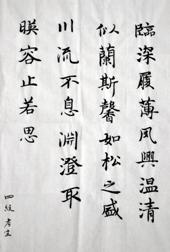 臨深履薄夙興温凊
似蘭斯馨如松之盛
川流不息淵澄取
暎容止若思
四級 考生